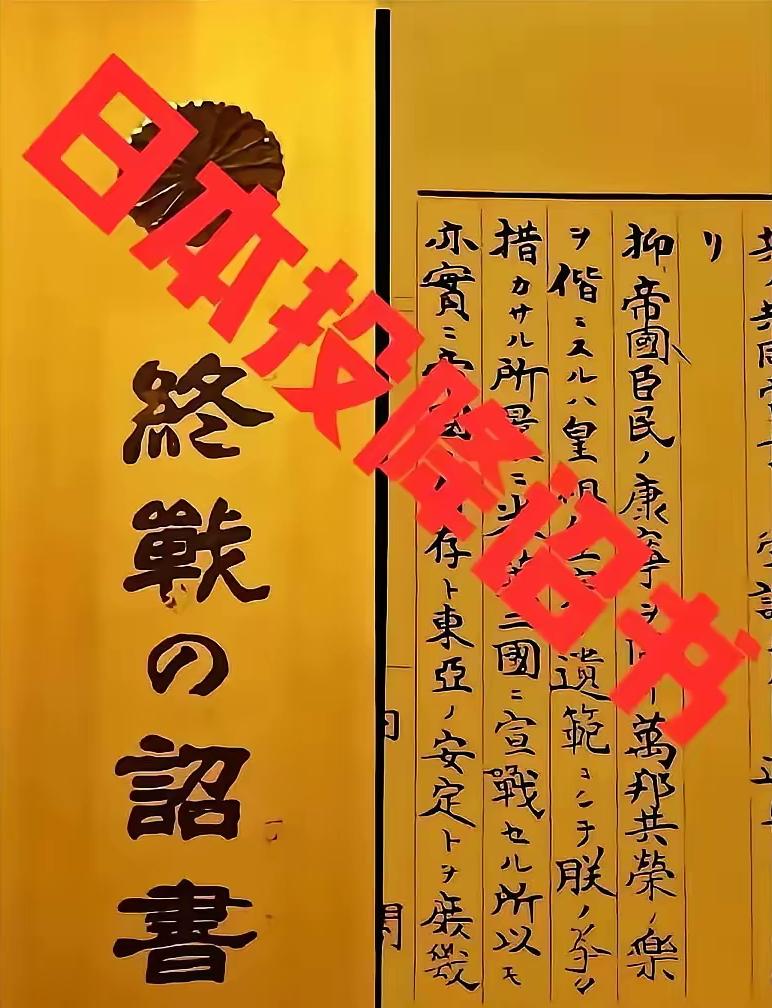 日本投降诏书
終戰の詔書
リ
抑帝國臣民ノ康寧ヲ萬邦共榮ノ樂
ヲ偕ニスルハ皇祖遺範ニシテ朕ノ拳
措カサル所曩ニ米英二國ニ宣戰セル所以モ
亦實ニ帝國存ト東亞ノ安定トヲ庶幾